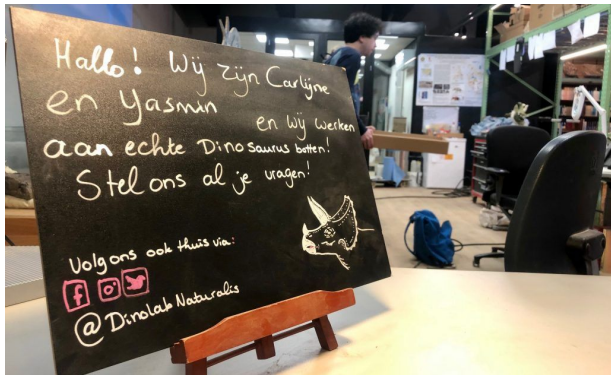 Hallo! Wij zijn Carlijne
en Yasmin en wij werken
aan echte Dinosaurus botten!
Stel ons al je vragen!
Volg ons ook thuis via:
@DinolabNaturalis